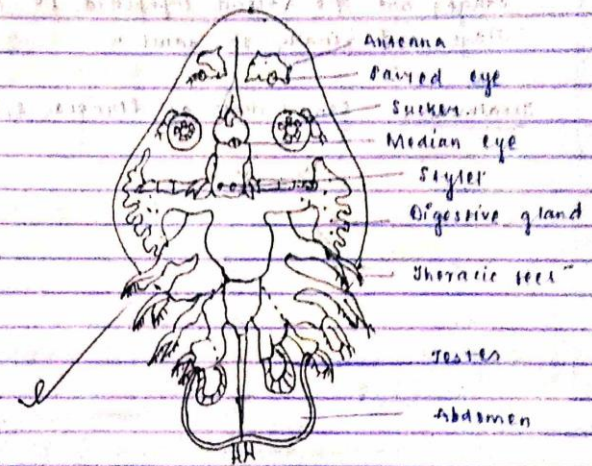 Antenna
Paired eye
Sucker
Median eye
Stylet
Digestive gland
Thoracic feet
Testes
Abdomen